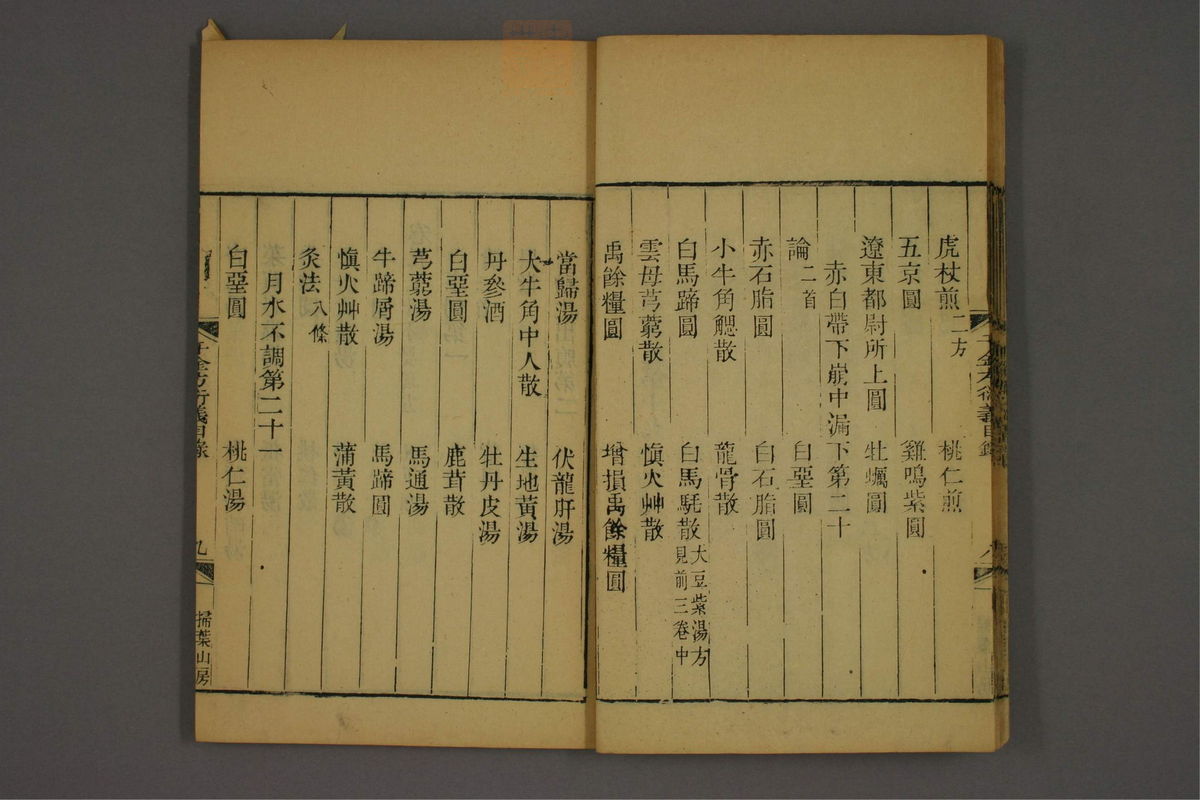 虎杖煎二方 桃仁煎
五京圓 雞鳴紫圓
遼東都尉所上圓 牡蠣圓
赤白帶下崩中漏下第二十
論二首 白堊圓
赤石脂圓 白石脂圓
小牛角䚡散 龍骨散
白馬蹄圓 白馬駞散大豆紫湯方見前三卷中
雲母芎藭散 愼火艸散
禹餘糧圓 增損禹餘糧圓
當歸湯 伏龍肝湯
大牛角中人散 生地黃湯
丹參酒 牡丹皮湯
白堊圓 鹿茸散
芎藭湯 馬通湯
牛蹄屑湯 馬蹄圓
愼火艸散 蒲黃散
灸法八條
月水不調第二十一
白堊圓 桃仁湯
千金方衍義目錄 九 掃葉山房